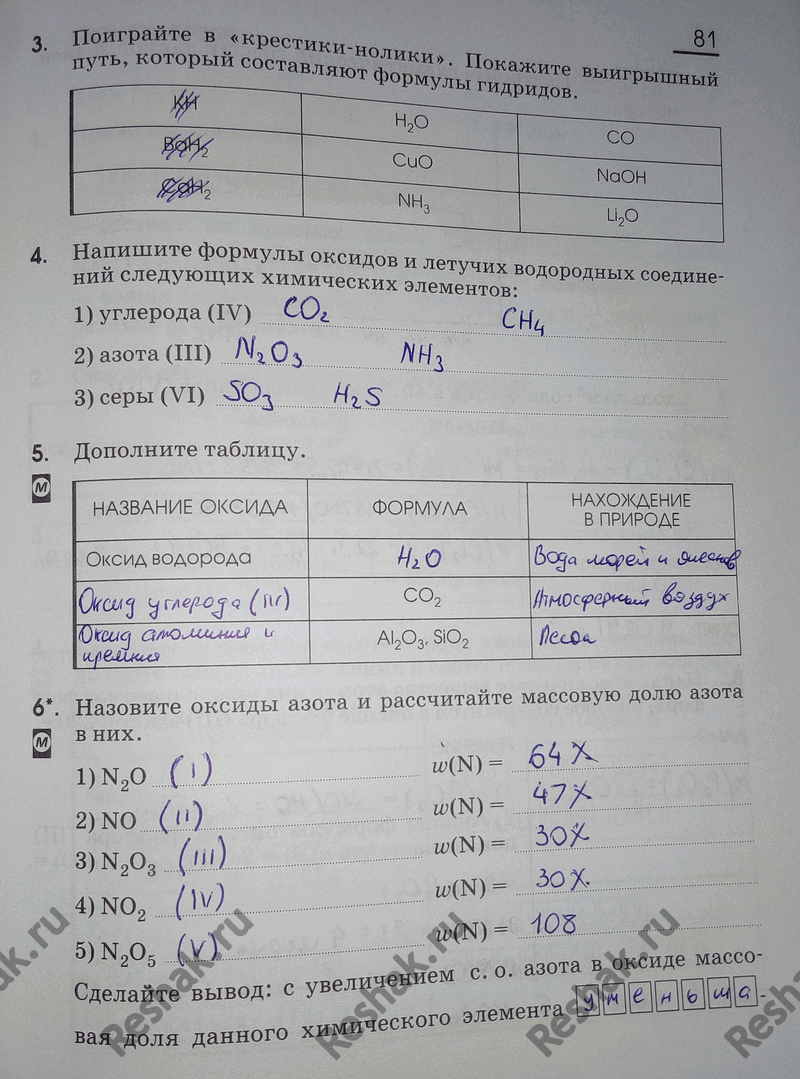 81
3. Поиграйте в «крестики-нолики». Покажите выигрышный
путь, который составляют формулы гидридов.
KH H₂O CO
BaH₂ CuO NaOH
CaH₂ NH₃ Li₂O
4. Напишите формулы оксидов и летучих водородных соедине-
ний следующих химических элементов:
1) углерода (IV) CO₂ CH₄
2) азота (III) N₂O₃ NH₃
3) серы (VI) SO₃ H₂S
5. Дополните таблицу.
М
НАЗВАНИЕ ОКСИДА ФОРМУЛА НАХОЖДЕНИЕ
В ПРИРОДЕ
Оксид водорода H₂O Вода морей и
Оксид углерода (IV) CO₂ Атмосферный воздух
Оксид алюминия и
кремния Al₂O₃, SiO₂
6*. Назовите оксиды азота и рассчитайте массовую долю азота
М
в них.
1) N₂O (I) w(N) = 64%
2) NO (II) w(N) = 47%
3) N₂O₃ (III) w(N) = 30%
4) NO₂ (IV) w(N) = 30%
5) N₂O₅ (V) w(N) = 108
Сделайте вывод: с увеличением с. о. азота в оксиде массо-
вая доля данного химического элемента уменьша.
Reshak.ru
Reshak.ru
Reshak.ru
Reshak.ru